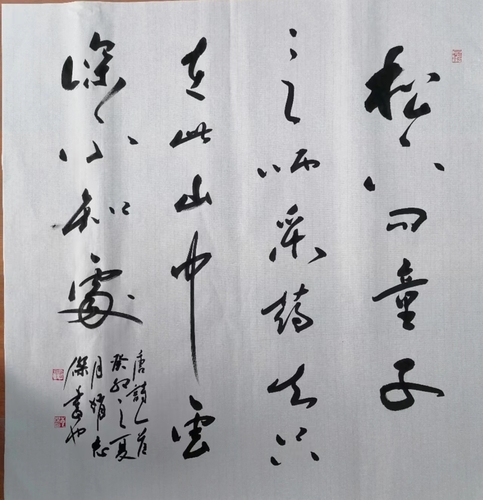 松下问童子
言师采药去只
在此山中雲
深不知處
唐詩一首
癸卯之夏
月
保